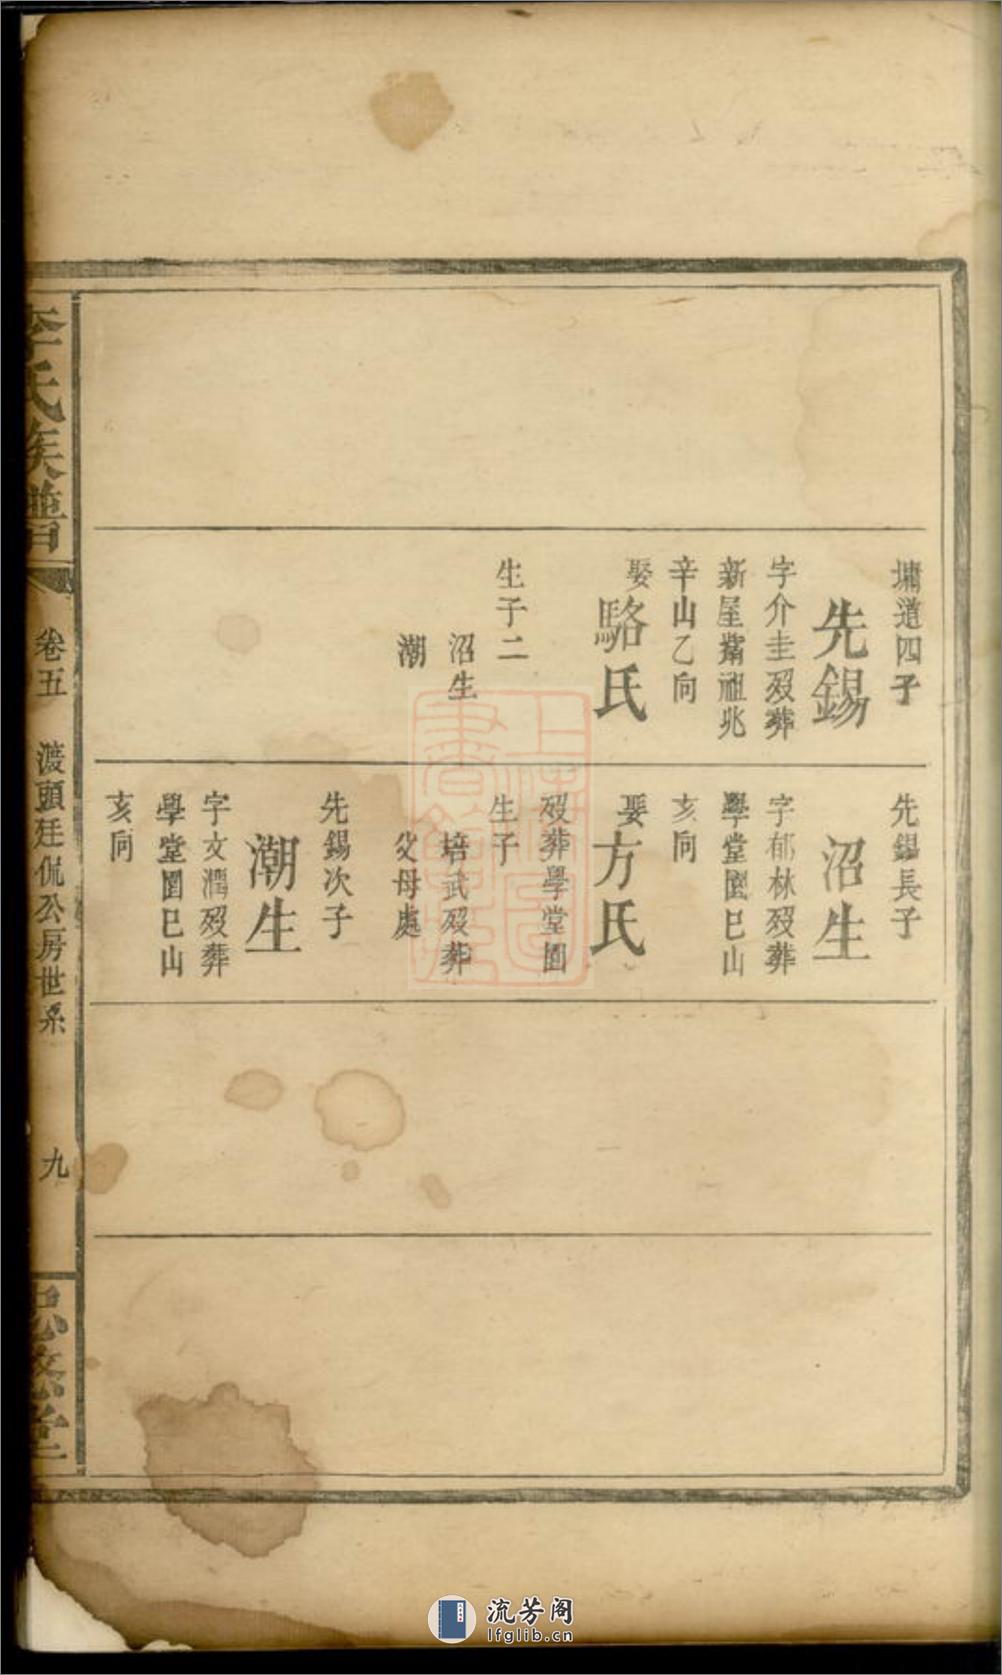 墉道四子
先錫
字介圭歿葬
新屋觜祖兆
辛山乙向
娶駱氏
生子二
沼生
潮
先錫長子
沼生
字郁林歿葬
學堂園巳山
亥向
娶方氏
歿葬學堂園
生子
培武歿葬
父母處
先錫次子
潮生
字文潤歿葬
學堂園巳山
亥向
李氏族譜
卷五
渡頭廷侃公房世系
九
上海圖書館藏
流芳阁
lfglib.cn